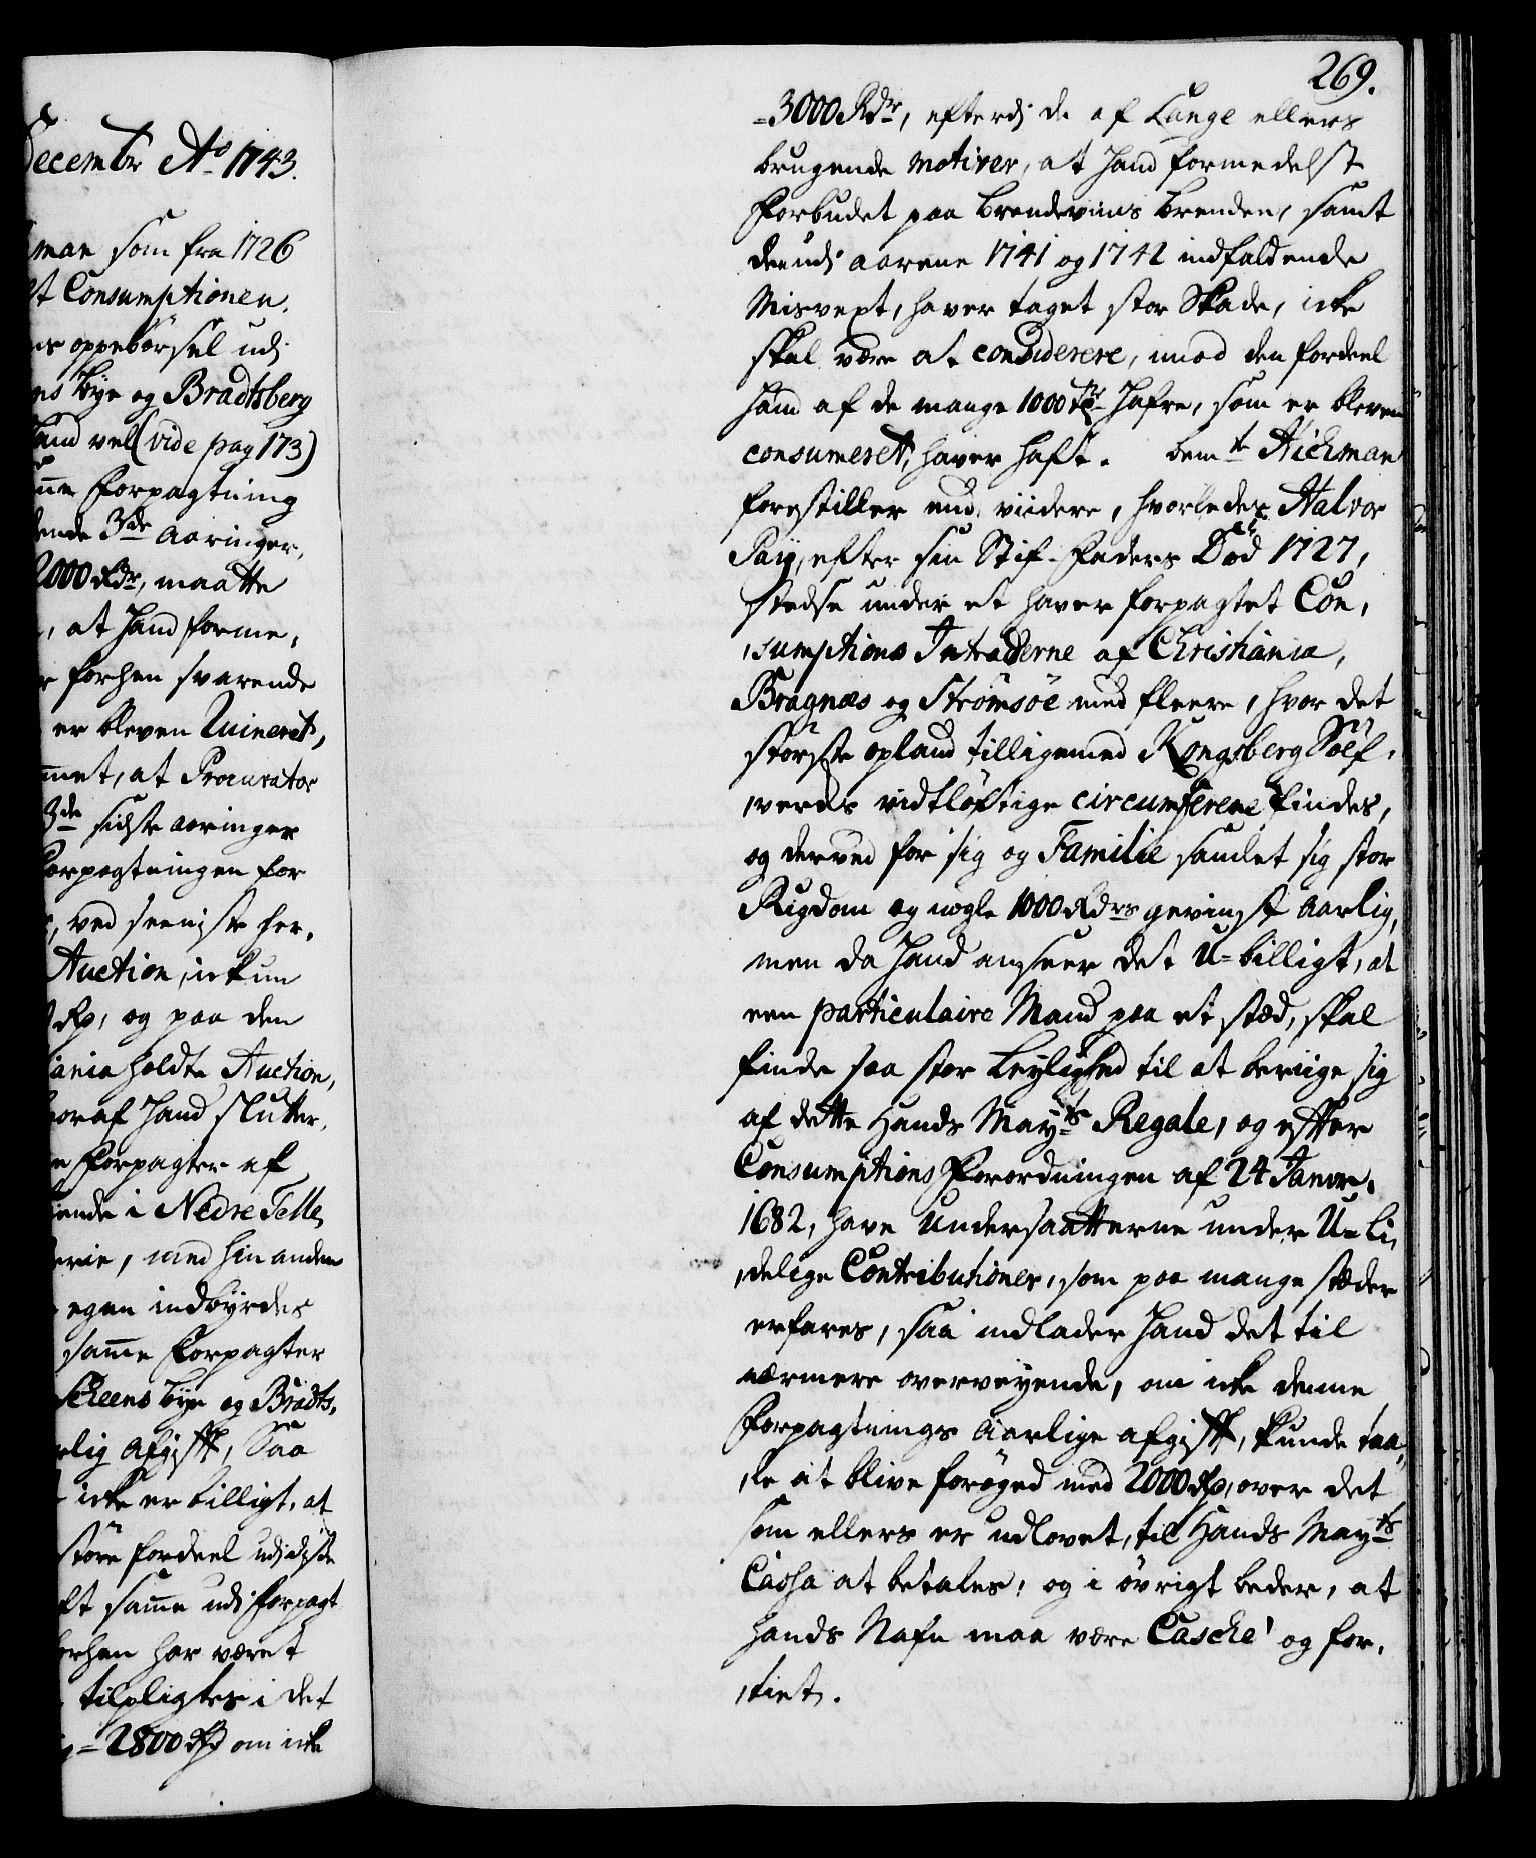 Decembr Ao 1743.
man som fra 1726
Consumptionen,
oppebörsel udi
bye og Bradtsberg
vel (vide pag 173)
Forpagtning
3de Aaringer,
2000 Rdr, maatte
, at Hand forme,
forhen svarende
er bleven Ruineret,
at Procurator
3de sidste aaringer
Forpagtningen for
, ved seeniste for,
Auction, ickun
Rp, og paa den
holdte Auction,
hvoraf Hand slutter,
Forpagter af
i Nedre Telle,
, med hin anden
egen indbyrdes
samme Forpagter
Scheens bye og Bradts,
Afgift, Saa
icke er billigt, at
större fordeel udi disse
samme udi forpagt
forhen har været
tilpligtes i det
2800 Rd om icke
269.
=3000 Rdr, efterdj de af Lange ellers
brugende motiver, at Hand formedelst
Forbudet paa Brendeviins Brenden, samt
den udj aarene 1741 og 1742 indfaldende
Misvext, haver taget stor Skade, icke
skal være at considerere, imod den fordeel
Hand af de mange 1000 tr Hafre, som er bleven
consumeret, haver haft. bemte Hickman
forestiller end viidere, hvorledes Halvor
Paij, efter sin Stif-Faders Död 1727,
stedse under et haver forpagtet Con,
,sumptions Intraderne af Christiania,
Bragnæs og Strömsöe med fleere, hvor det
störste opland tilligemed Kongsberg Sölf,
,verks vidtlöftige circumference findes,
og derved for sig og Familie samlet sig stor
Rigdom og nogle 1000 Rdrs gevinst Aarlig,
men da Hand anseer det U-billigt, at
een particulaire Mand paa et stæd, skal
finde saa stor Leylighed til at beriige sig
af dette Hands Mayts Regale, og efter
Consumptions Forordningen af 24 Janvr.
1682, have Undersaatterne under U-li,
,delige Contributioner, som paa mange stæder
erfares, saa indlader Hand det til
nærmere overveyende, om icke denne
Forpagtnings Aarlige afgift, kunde taa,
,le at blive foröged med 2000 Rp, over det
som ellers er udlovet, til Hands Mayts
Cassa at betales, og i övrigt beder, at
Hands Nafn maa være Casché og for,
,tiet.